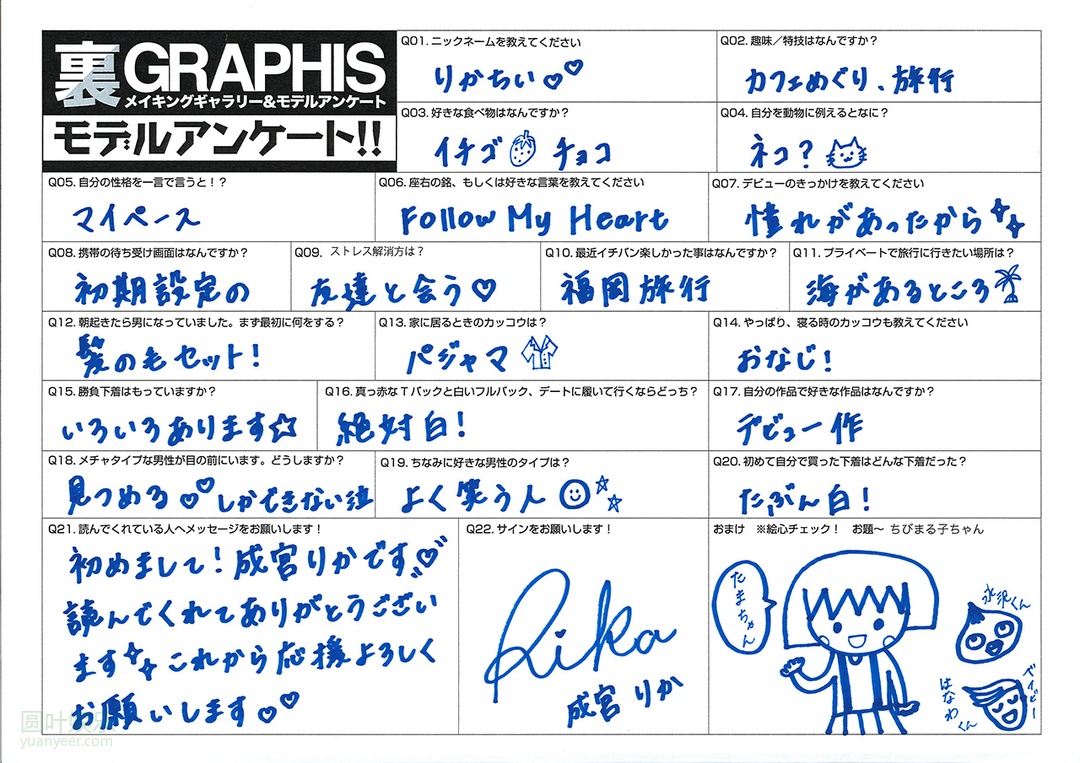 裏GRAPHIS
メイキングギャラリー&モデルアンケート
モデルアンケート!!
Q01. ニックネームを教えてください
りかちぃ♡♡
Q02. 趣味／特技はなんですか？
カフェめぐり、旅行
Q03. 好きな食べ物はなんですか？
イチゴ チョコ
Q04. 自分を動物に例えるとなに？
ネコ？
Q05. 自分の性格を一言で言うと！？
マイペース
Q06. 座右の銘、もしくは好きな言葉を教えてください
Follow My Heart
Q07. デビューのきっかけを教えてください
憧れがあったから
Q08. 携帯の待ち受け画面はなんですか？
初期設定の
Q09. ストレス解消方は？
友達と会う♡
Q10. 最近イチバン楽しかった事はなんですか？
福岡旅行
Q11. プライベートで旅行に行きたい場所は？
海があるところ
Q12. 朝起きたら男になっていました。まず最初に何をする？
髪の毛セット！
Q13. 家に居るときのカッコウは？
パジャマ
Q14. やっぱり、寝る時のカッコウも教えてください
おなじ！
Q15. 勝負下着はもっていますか？
いろいろあります☆
Q16. 真っ赤なTバックと白いフルバック、デートに履いて行くならどっち？
絶対白！
Q17. 自分の作品で好きな作品はなんですか？
デビュー作
Q18. メチャタイプな男性が目の前にいます。どうしますか？
見つめる♡♡しかできない泣
Q19. ちなみに好きな男性のタイプは？
よく笑う人
Q20. 初めて自分で買った下着はどんな下着だった？
たぶん白！
Q21. 読んでくれている人へメッセージをお願いします！
初めまして！成宮りかです♡
読んでくれてありがとうござい
ます これから応援よろしく
お願いします♡♡
Q22. サインをお願いします！
Rika
成宮りか
おまけ ※絵心チェック！ お題〜 ちびまる子ちゃん
たまちゃん
永沢くん
はなわくん
ベイビー
yuanyeer.com